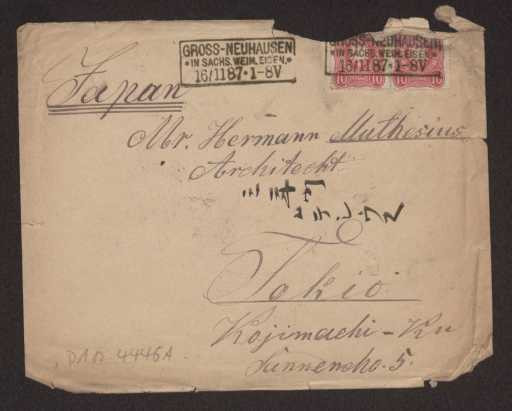 GROSS-NEUHAUSEN
*IN SACHS. WEIM. EISEN.*
16/11 87·1-8V
GROSS-NEUHAUSEN
*IN SACHS. WEIM. EISEN.*
16/11 87·1-8V
10 10 10
Japan
Mr. Hermann Muthesius
Architecht
Tokio.
Kojimachi-Ku
5.
D1Ω 4446A